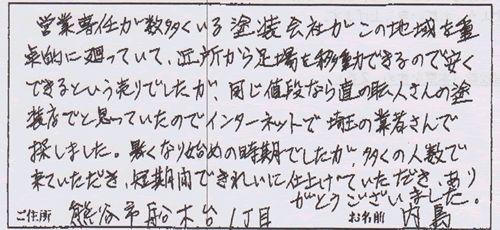 営業専任が数多くいる塗装会社がこの地域を重
点的に廻っていて、近所から足場を移動できるので安く
できるという売りでしたが、同じ値段なら直の職人さんの塗
装店でと思っていたのでインターネットで埼玉の業者さんで
探しました。暑くなり始めの時期でしたが、多くの人数で
来ていただき、短期間できれいに仕上げていただき、あり
がとうございました。
ご住所 熊谷市船木台1丁目 お名前 内島